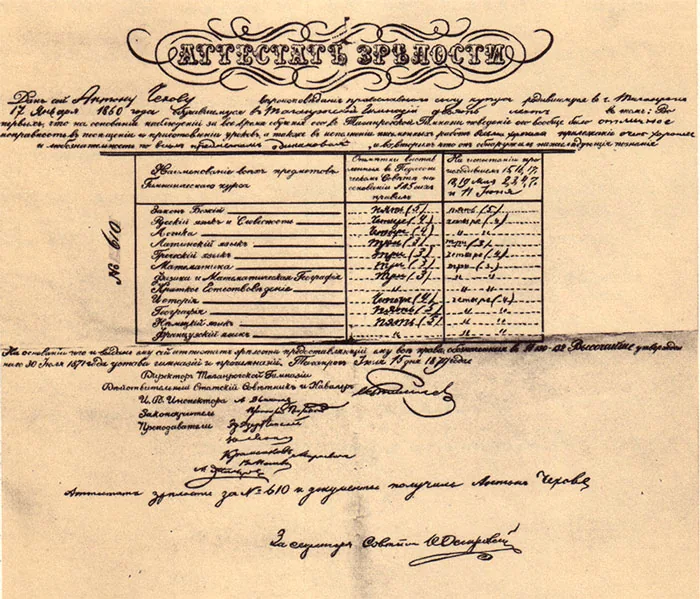 АТТЕСТАТЪ ЗРѢЛОСТИ
Данъ сей Антону Чехову вѣроисповѣданія православнаго сыну купца родившемуся въ г. Таганрогѣ
17 Января 1860 года обучавшемуся въ Таганрогской Гимназіи
первыхъ, что на основаніи наблюденій за все время обученія его въ Таганрогской Гимназіи поведеніе его вообще было отличное
исправность въ посѣщеніи и приготовленіи уроковъ, а также въ исполненіи письменныхъ работъ весьма хороша прилежаніе очень хорошее
и любознательность по всѣмъ предметамъ одинаковая и, во вторыхъ что онъ обнаружилъ нижеслѣдующія познанія
Наименованіе всѣхъ предметовъ Гимназическаго курса
Отмѣтки выставленныя въ Педагогическомъ Совѣтѣ на основаніи правилъ
На испытаніи происходившемъ 15, 16, 17, 18, 19 Мая 2, 3, 4, 7, и 11 Іюня
№ 610
Законъ Божій пять (5) пять (5)
Русскій языкъ и Словесность четыре (4) четыре (4)
Логика четыре (4) "
Латинскій языкъ три (3) три (3)
Греческій языкъ три (3) четыре (4)
Математика три (3) три (3)
Физика и Математическая Географія три (3) " "
Краткое Естествовѣденіе " " "
Исторія четыре (4) четыре (4)
Географія пять (5) " "
Нѣмецкій языкъ пять (5) " "
Французскій языкъ " " "
На основаніи чего и выданъ ему сей аттестатъ зрѣлости предоставляющій ему всѣ права, обозначенныя въ Высочайше утвержден
наго 30 Іюля 1871 года устава гимназій и прогимназій. Таганрогъ Іюня 15 дня 1879 года
Директоръ Таганрогской Гимназіи
Дѣйствительный Статскій Совѣтникъ и Кавалеръ
И. Д. Инспектора А. Дьяконовъ
Законоучитель
Преподаватели
Аттестатъ зрѣлости за № 610 и документы получилъ Антонъ Чеховъ
За секретаря Совѣта